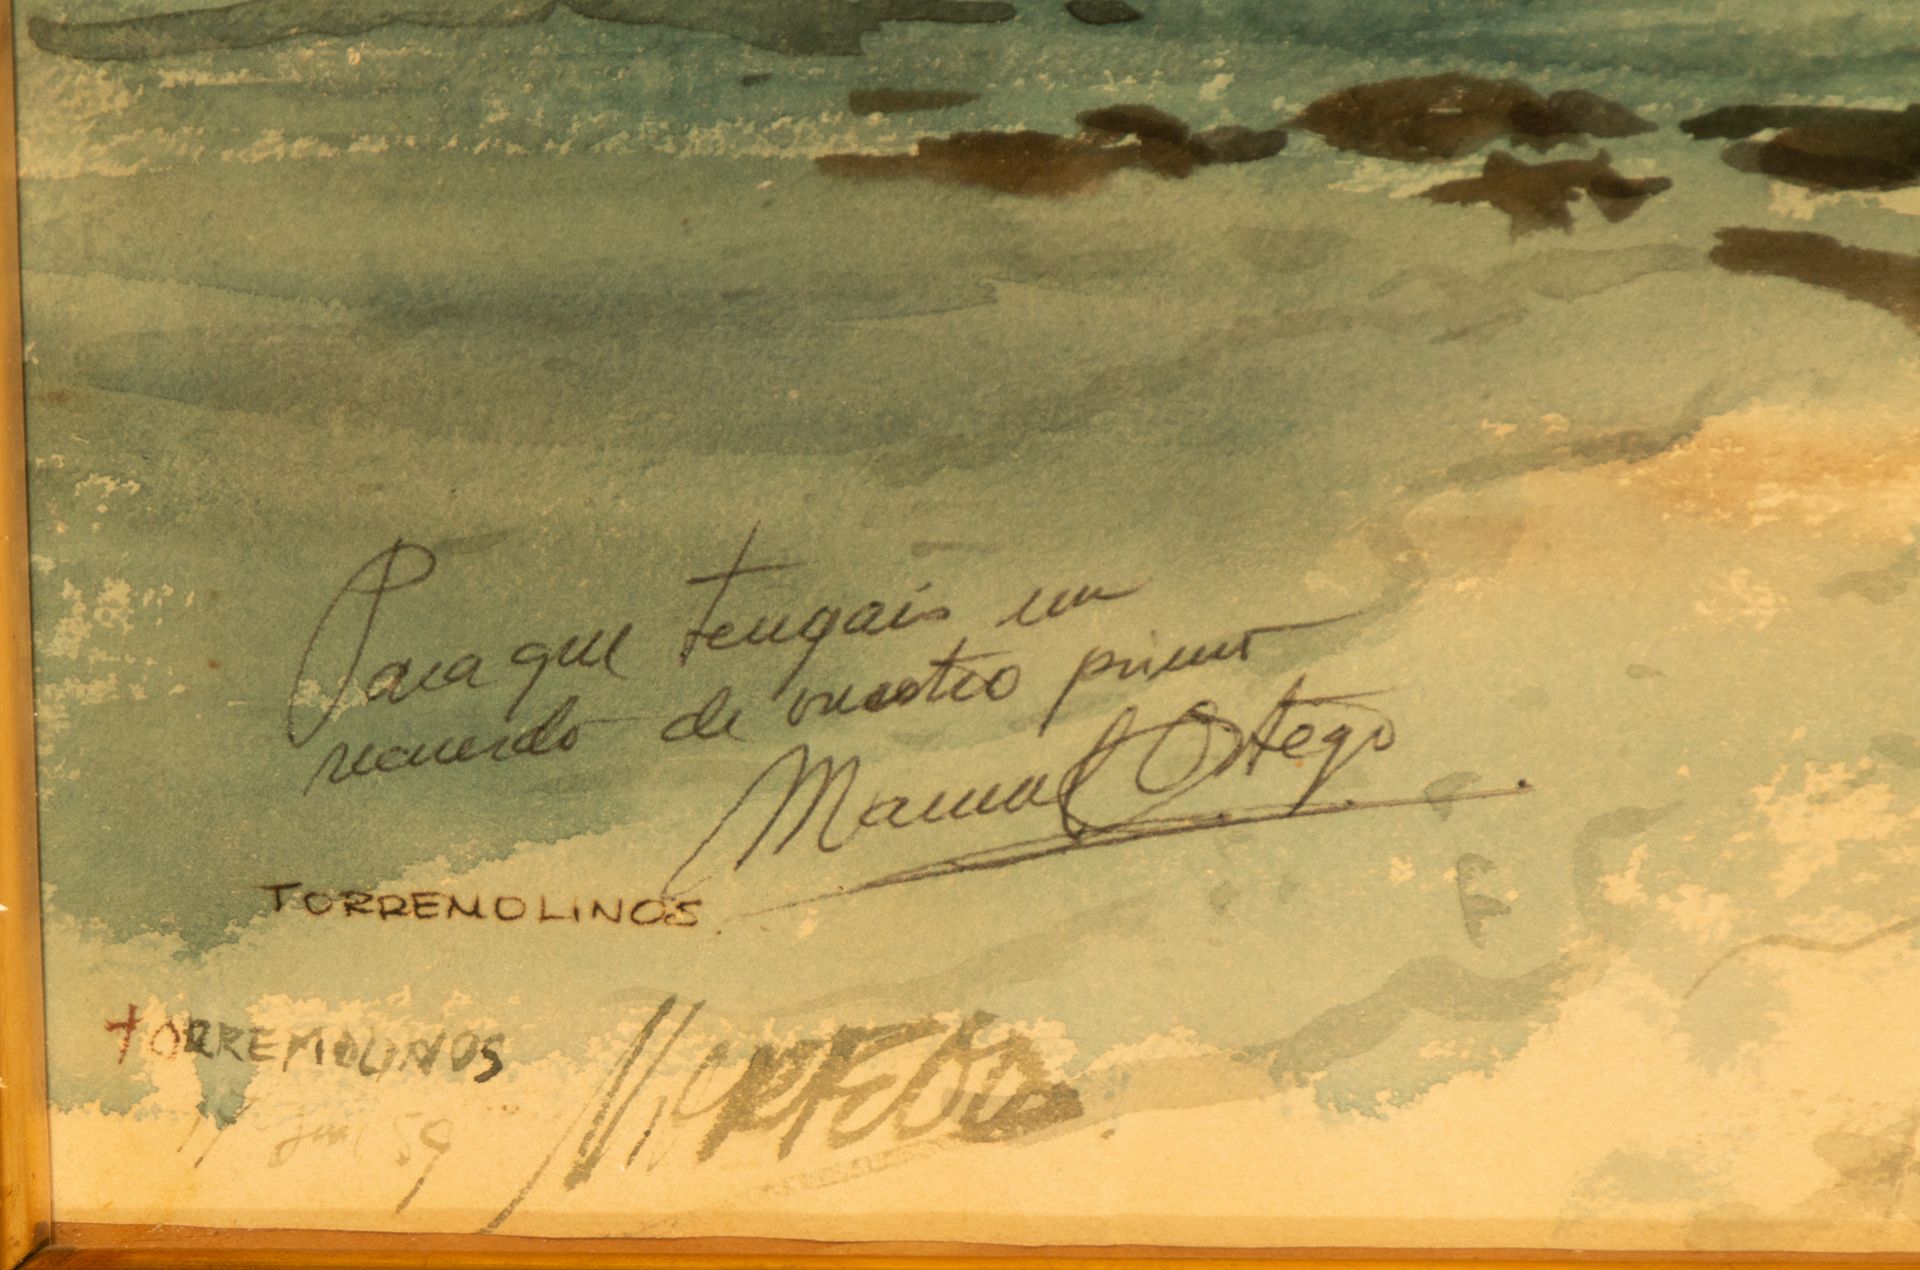 Para que tengais un
recuerdo de vuestro primo
Manuel Ortego
TORREMOLINOS
TORREMOLINOS
59